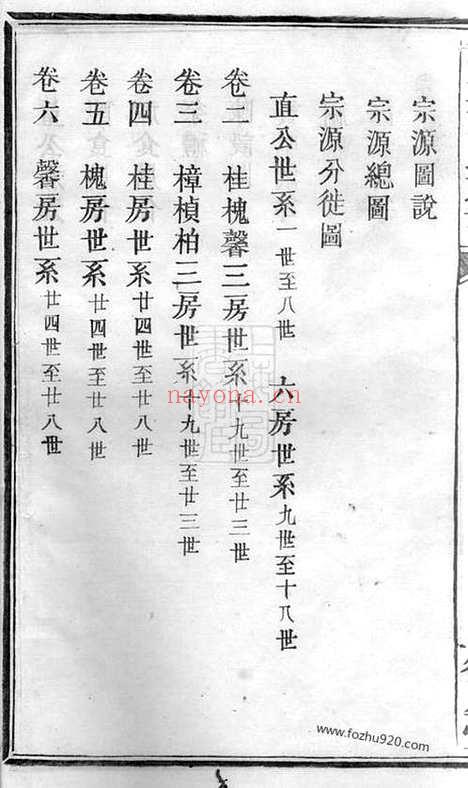 宗源圖說
宗源總圖
宗源分徙圖
直公世系一世至八世　六房世系九世至十八世
卷二　桂槐馨三房世系十九世至廿三世
卷三　樟楨柏三房世系十九世至廿三世
卷四　桂房世系廿四世至廿八世
卷五　槐房世系廿四世至廿八世
卷六　馨房世系廿四世至廿八世
nayona.cn
www.fozhu920.com